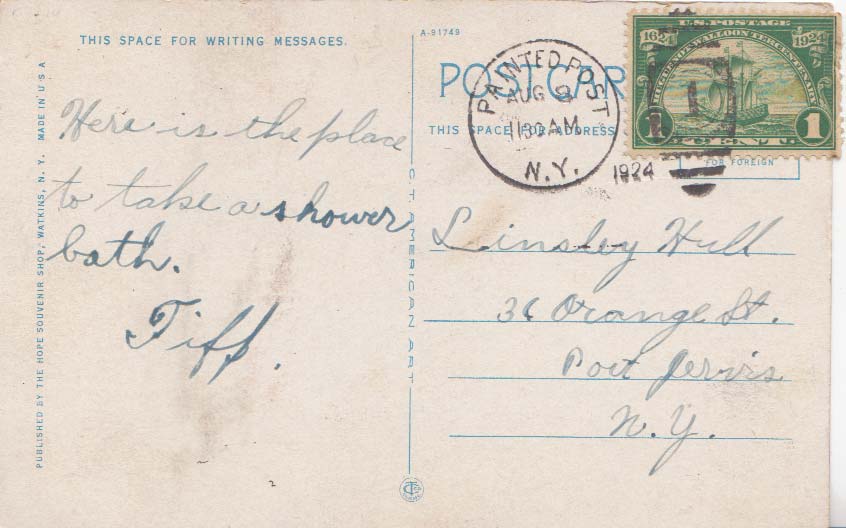 THIS SPACE FOR WRITING MESSAGES.
Here is the place
to take a shower
bath.
Tiff.
PUBLISHED BY THE HOPE SOUVENIR SHOP, WATKINS, N. Y. MADE IN U S A
C. T. AMERICAN ART
A-91749
POSTCAR
THIS SPACE FOR ADDRESS
PAINTED POST
AUG 9
1130 AM
N.Y.
1924
U.S. POSTAGE
1624
HUGUENOT-WALLOON TERCENTENARY
1924
1
CENT
1
FOR FOREIGN
Linsley Hill
36 Orange St.
Port Jervis
N.Y.